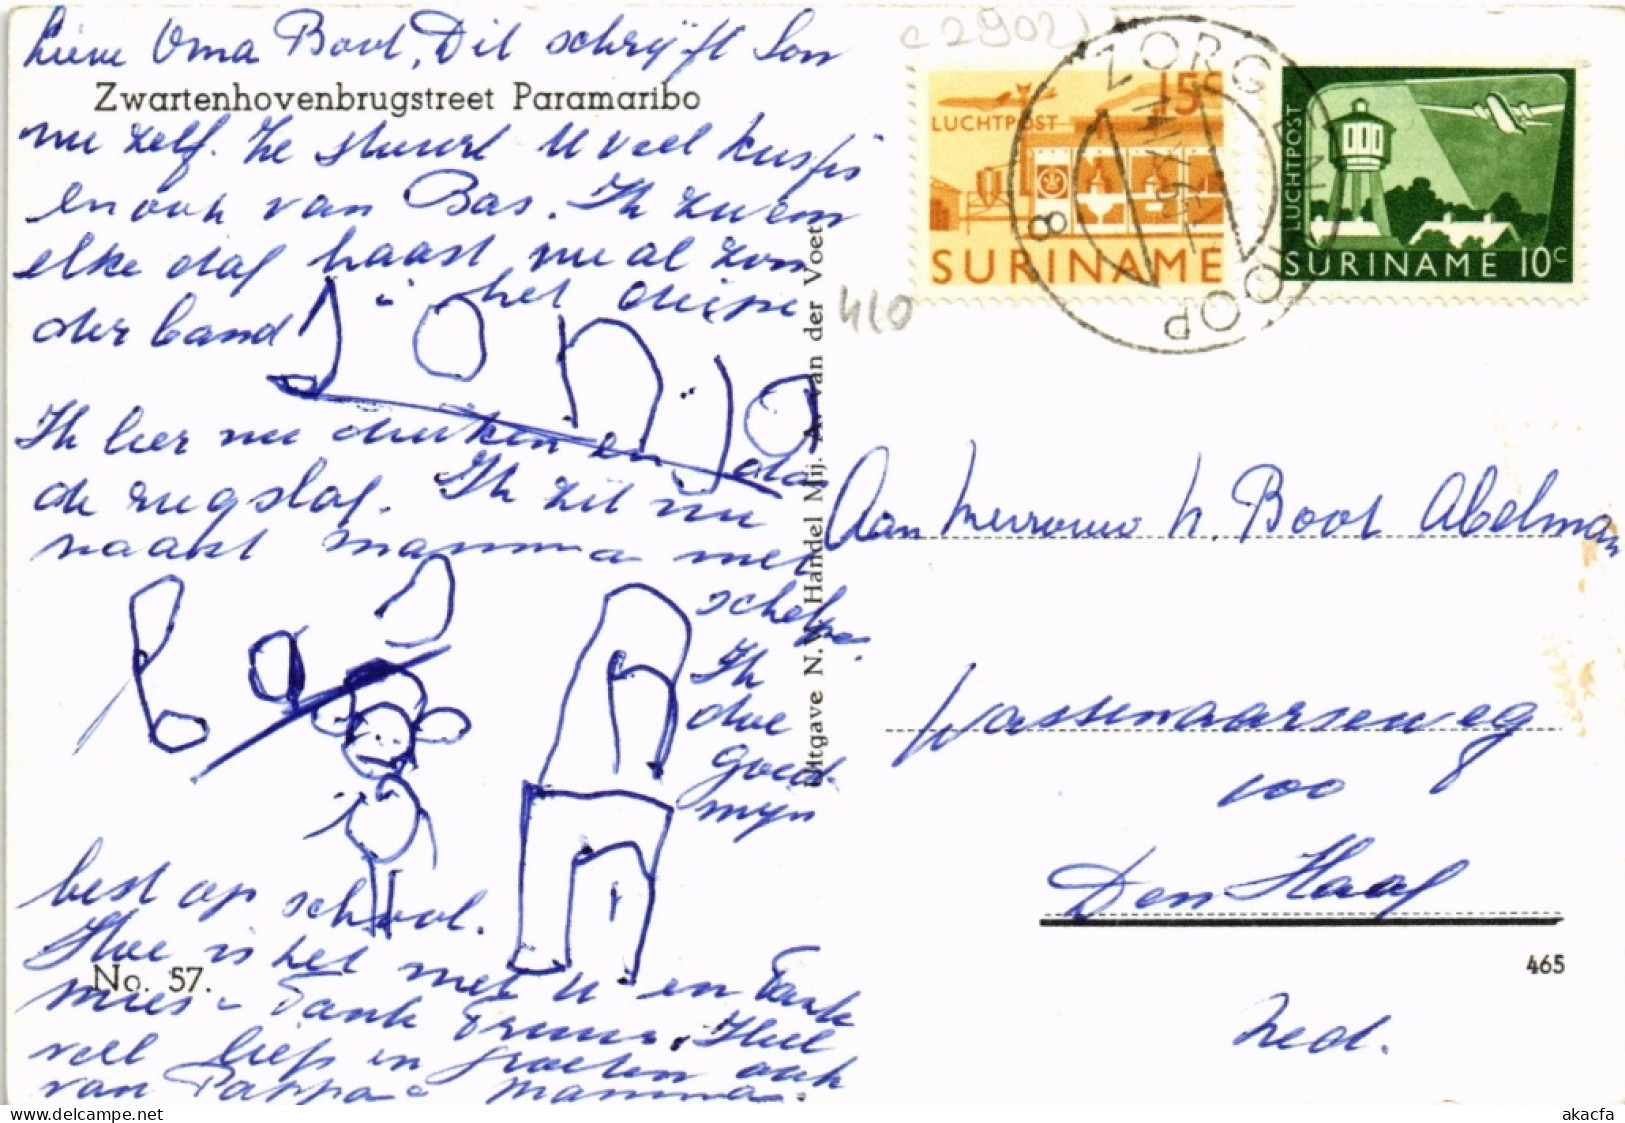 Lieve Oma Boot, Dit schrijft Son
Zwartenhovenbrugstreet Paramaribo
nu zelf. Ze stuurt U veel kusjes
en ook van Bas. Ik zwem
elke dag haast nu al zon
der band in het diepe
Ik leer nu duiken en
de rugslag. Ik zit nu
naast mamma met
schelpen
Ik
doe
goed
mijn
best op school.
Hoe is het met U en Tante
Mies - Tante Truus. Heel
veel liefs en groeten ook
van Pappa - Mamma.
No. 57.
Uitgave N.V. Handel Mij. A. van der Voet
c 2902
410
LUCHTPOST
15C
SURINAME
LUCHTPOST
SURINAME 10C
ZORG EN HOOP
8
Aan Mevrouw H. Boot Abelman
Wassenaarseweg
100
Den Haag
465
Ned.
delcampe.net
akacfa